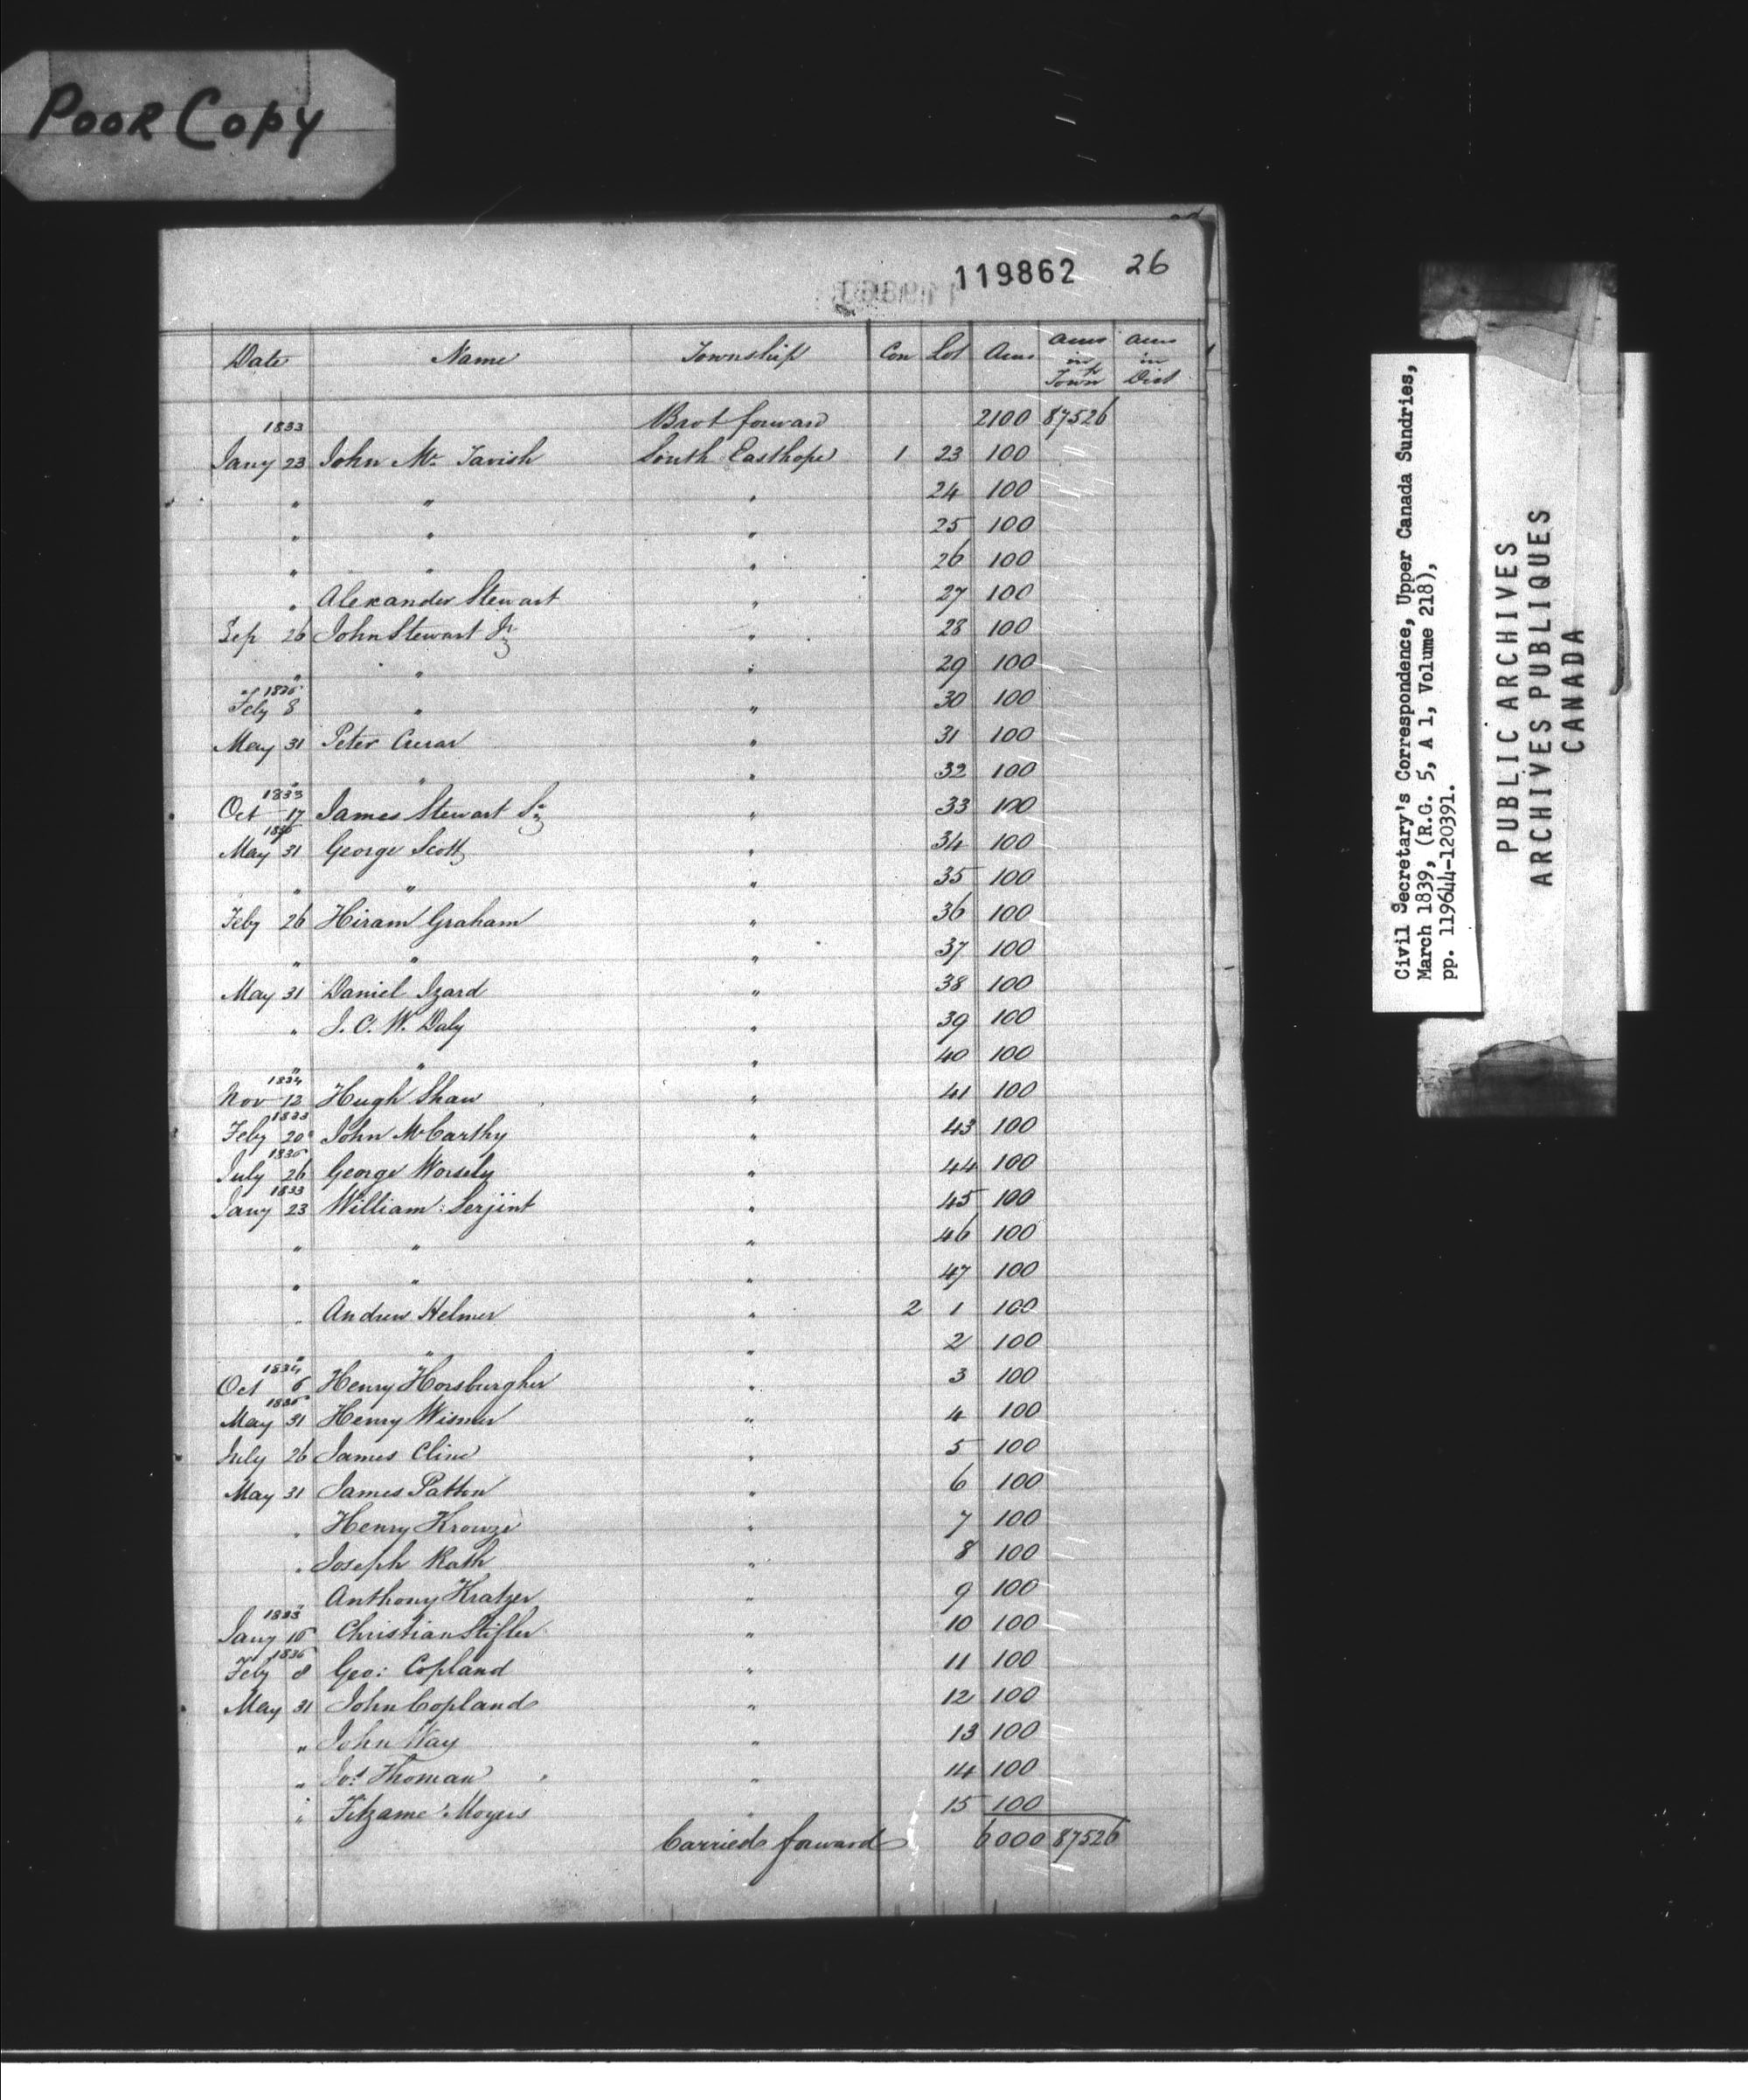 POOR COPY
119862 26
Date Name Township Con Lot Acres Acres in Town Acres in Dist
1833 Brot forward 2100 87526
Jany 23 John Mc Tavish South Easthope 1 23 100
" " " 24 100
" " " 25 100
" " " 26 100
" Alexander Stewart " 27 100
Sep 26 John Stewart Jr " 28 100
" " " 29 100
Feby 8 " " 30 100
May 31 Peter Crerar " 31 100
" " " 32 100
1833
Oct 17 James Stewart Sr " 33 100
May 31 George Scott " 34 100
" " " 35 100
Feby 26 Hiram Graham " 36 100
" " " 37 100
May 31 Daniel Izard " 38 100
" J. C. W. Daly " 39 100
" " " 40 100
1834
Nov 12 Hugh Shaw " 41 100
1833
Feby 20 John McCarthy " 43 100
July 26 George Worsely " 44 100
1833
Jany 23 William Serjint " 45 100
" " " 46 100
" " " 47 100
" Andrew Helmer " 2 1 100
" " " 2 100
1834
Oct 6 Henry Horsburgher " 3 100
May 31 Henry Wismer " 4 100
July 26 James Cline " 5 100
May 31 James Patton " 6 100
" Henry Krouze " 7 100
" Joseph Rath " 8 100
" Anthony Kratzer " 9 100
1833
Jany 16 Christian Stifler " 10 100
Feby 8 Geo: Copland " 11 100
May 31 John Copland " 12 100
" John Way " 13 100
" Jos Thoman " 14 100
" Moyers " 15 100
Carried forward 6000 87526
Civil Secretary's Correspondence, Upper Canada Sundries,
March 1839, (R.G. 5, A 1, Volume 218),
pp. 119644-120391.
PUBLIC ARCHIVES
ARCHIVES PUBLIQUES
CANADA